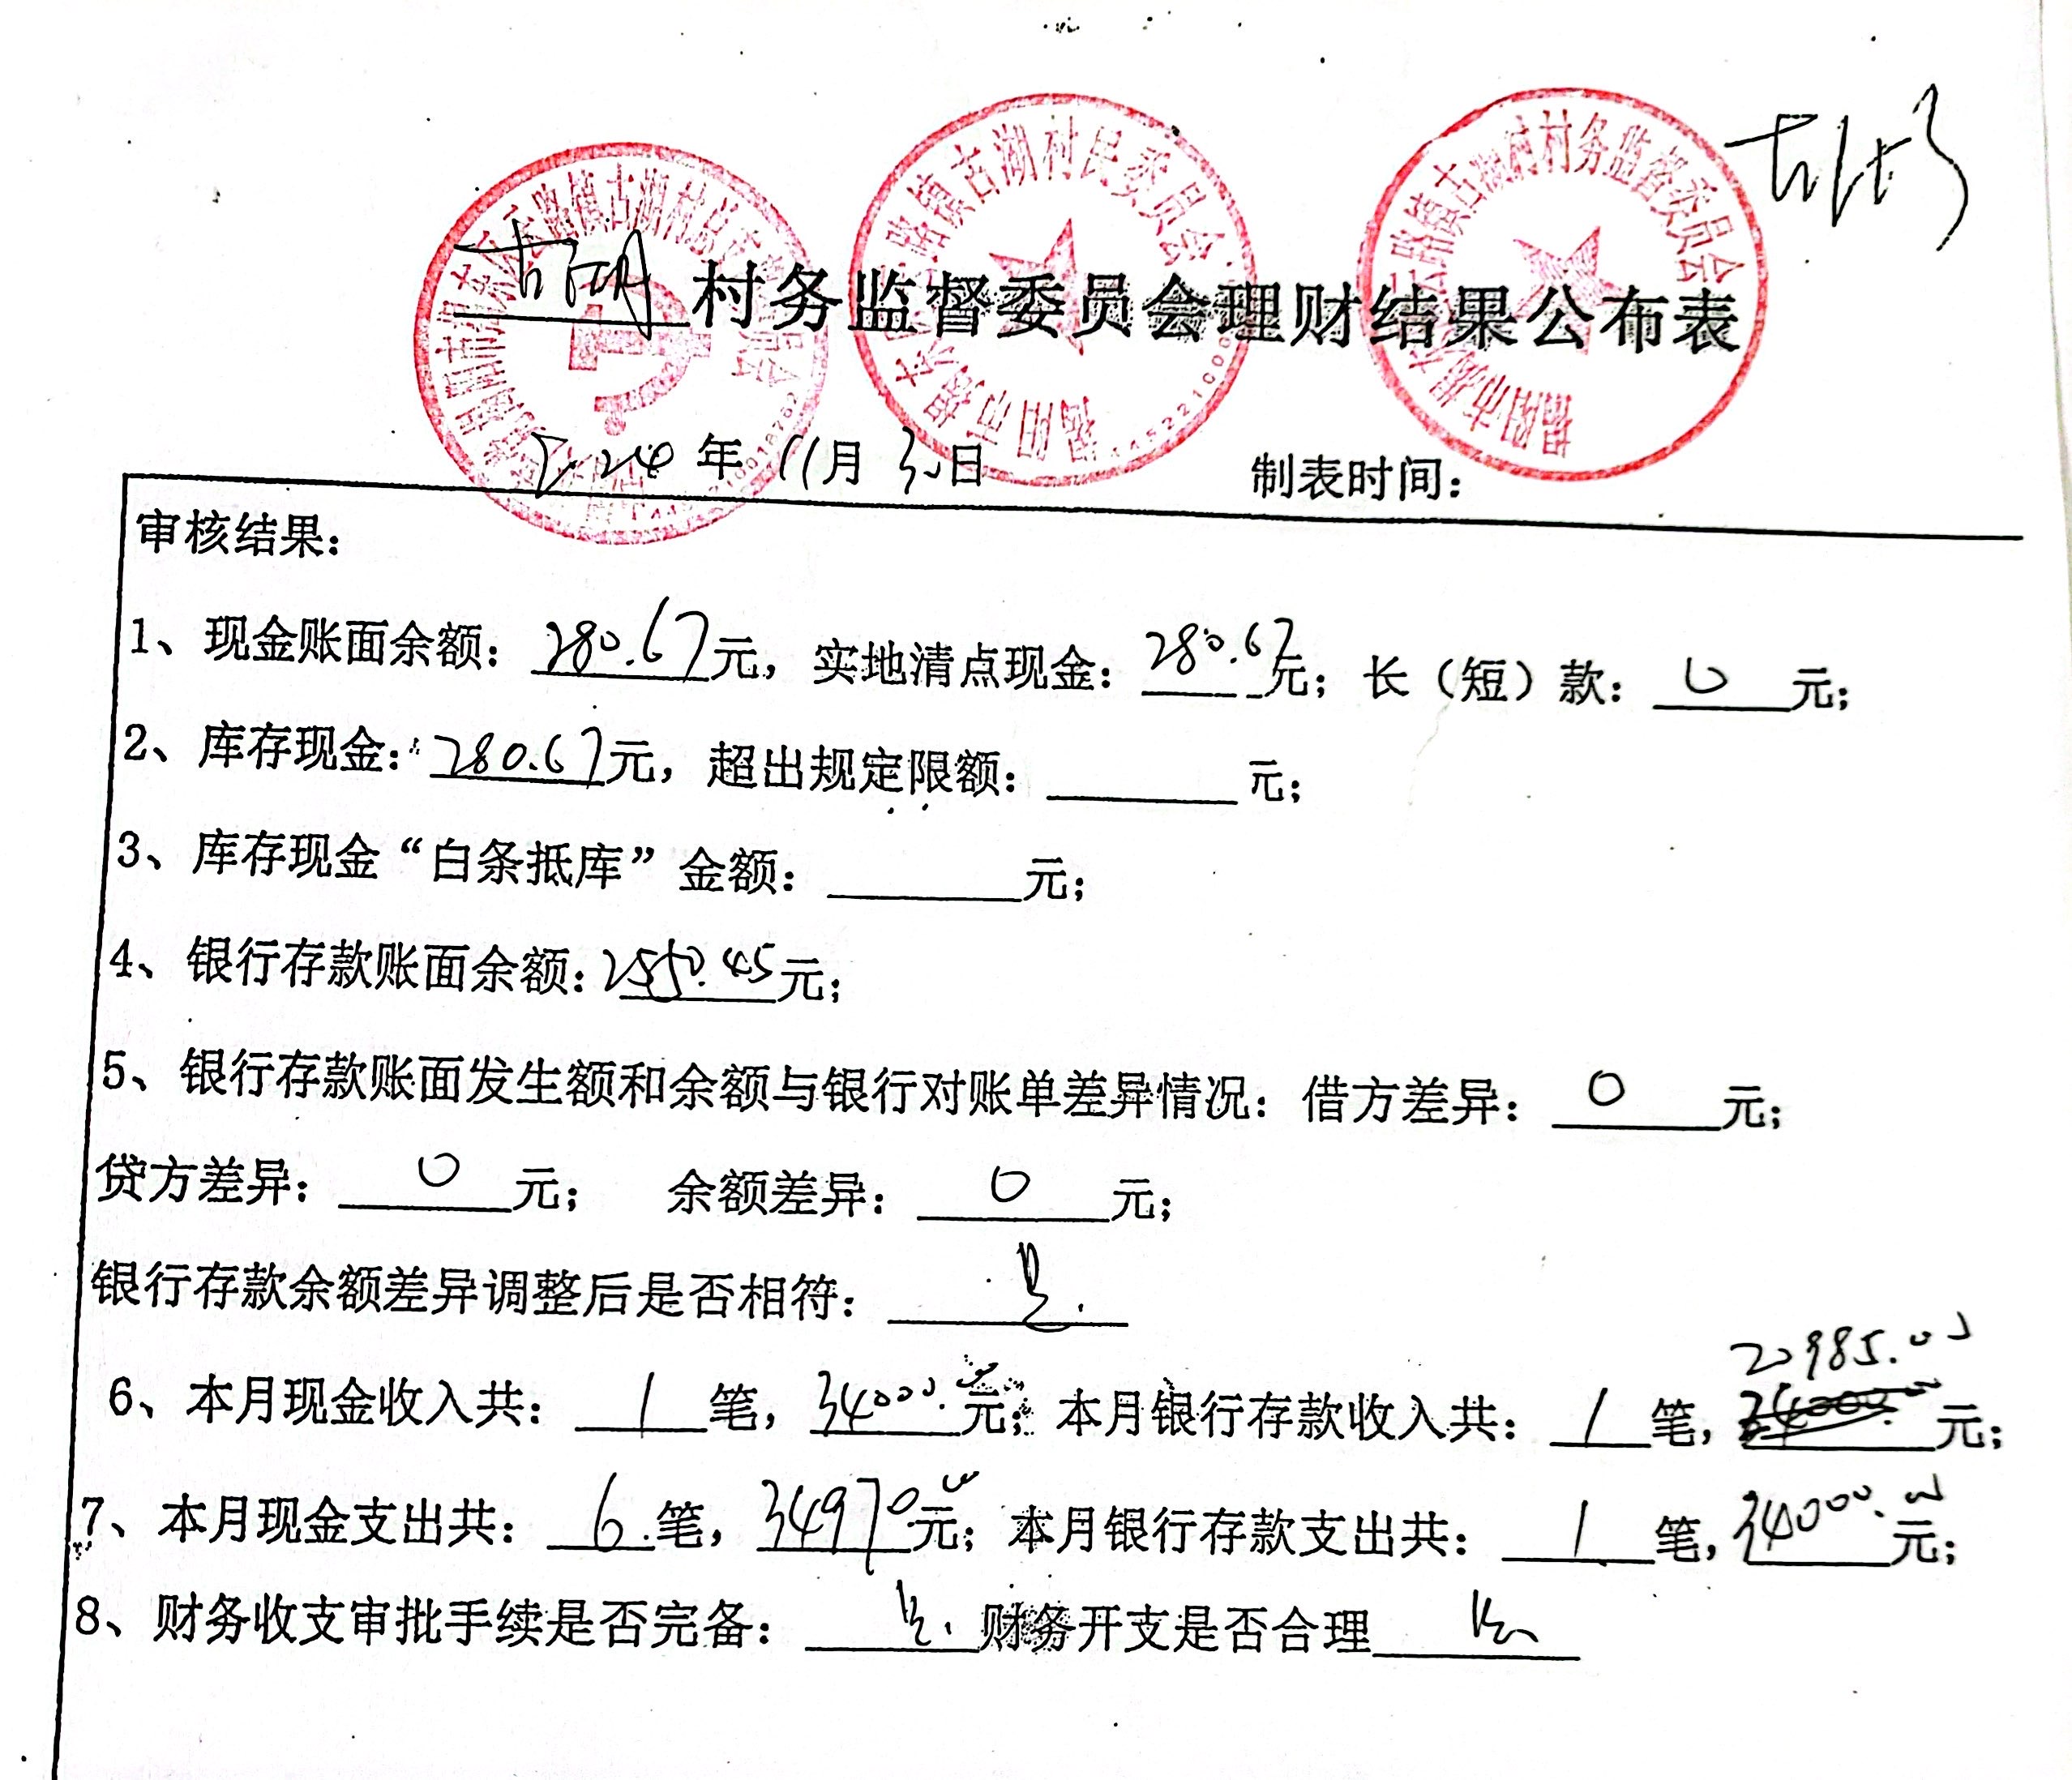 古湖村务监督委员会理财结果公布表
2024年11月30日 制表时间:
审核结果:
1、现金账面余额: 280.67元, 实地清点现金: 280.67元; 长(短)款: 0元;
2、库存现金: 280.67元, 超出规定限额: 元;
3、库存现金“白条抵库”金额: 元;
4、银行存款账面余额: 2550.45元;
5、银行存款账面发生额和余额与银行对账单差异情况: 借方差异: 0元;
贷方差异: 0元; 余额差异: 0元;
银行存款余额差异调整后是否相符: 是.
20985.00
6、本月现金收入共: 1笔, 34000.00元; 本月银行存款收入共: 1笔, 元;
7、本月现金支出共: 6笔, 34970.00元; 本月银行存款支出共: 1笔, 34000.00元;
8、财务收支审批手续是否完备: 是. 财务开支是否合理 是